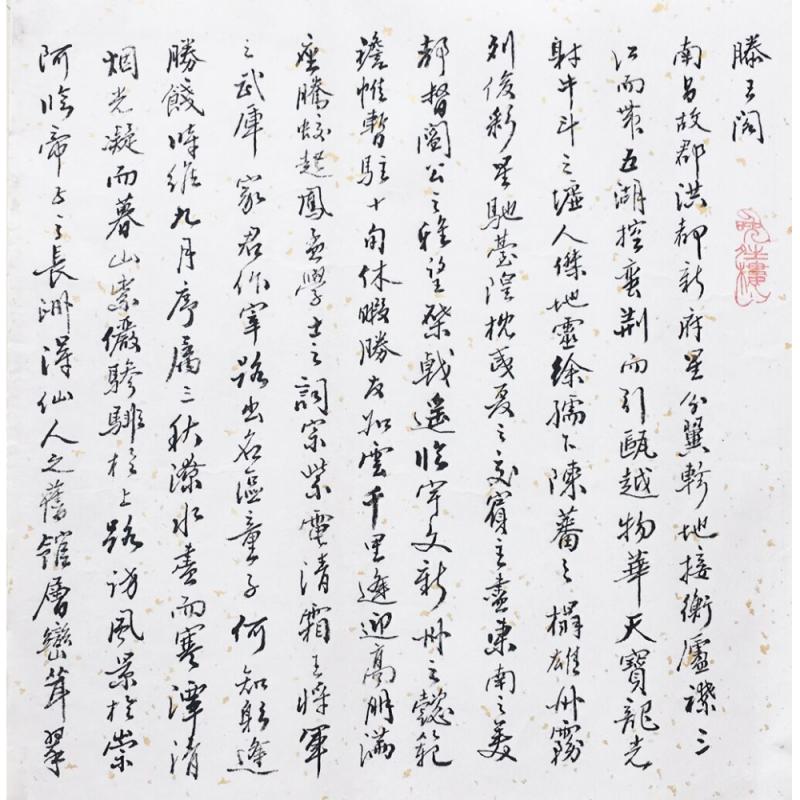 滕王閣
南昌故郡洪都新府星分翼軫地接衡廬襟三
江而帶五湖控蠻荊而引甌越物華天寶龍光
射牛斗之墟人傑地靈徐孺下陳蕃之榻雄州霧
列俊彩星馳臺隍枕夷夏之交賓主盡東南之美
都督閻公之雅望棨戟遙臨宇文新州之懿範
襜帷暫駐十旬休暇勝友如雲千里逢迎高朋滿
座騰蛟起鳳孟學士之詞宗紫電清霜王將軍
之武庫家君作宰路出名區童子何知躬逢
勝餞時維九月序屬三秋潦水盡而寒潭清
烟光凝而暮山紫儼驂騑於上路訪風景於崇
阿臨帝子之長洲得仙人之舊館層巒聳翠